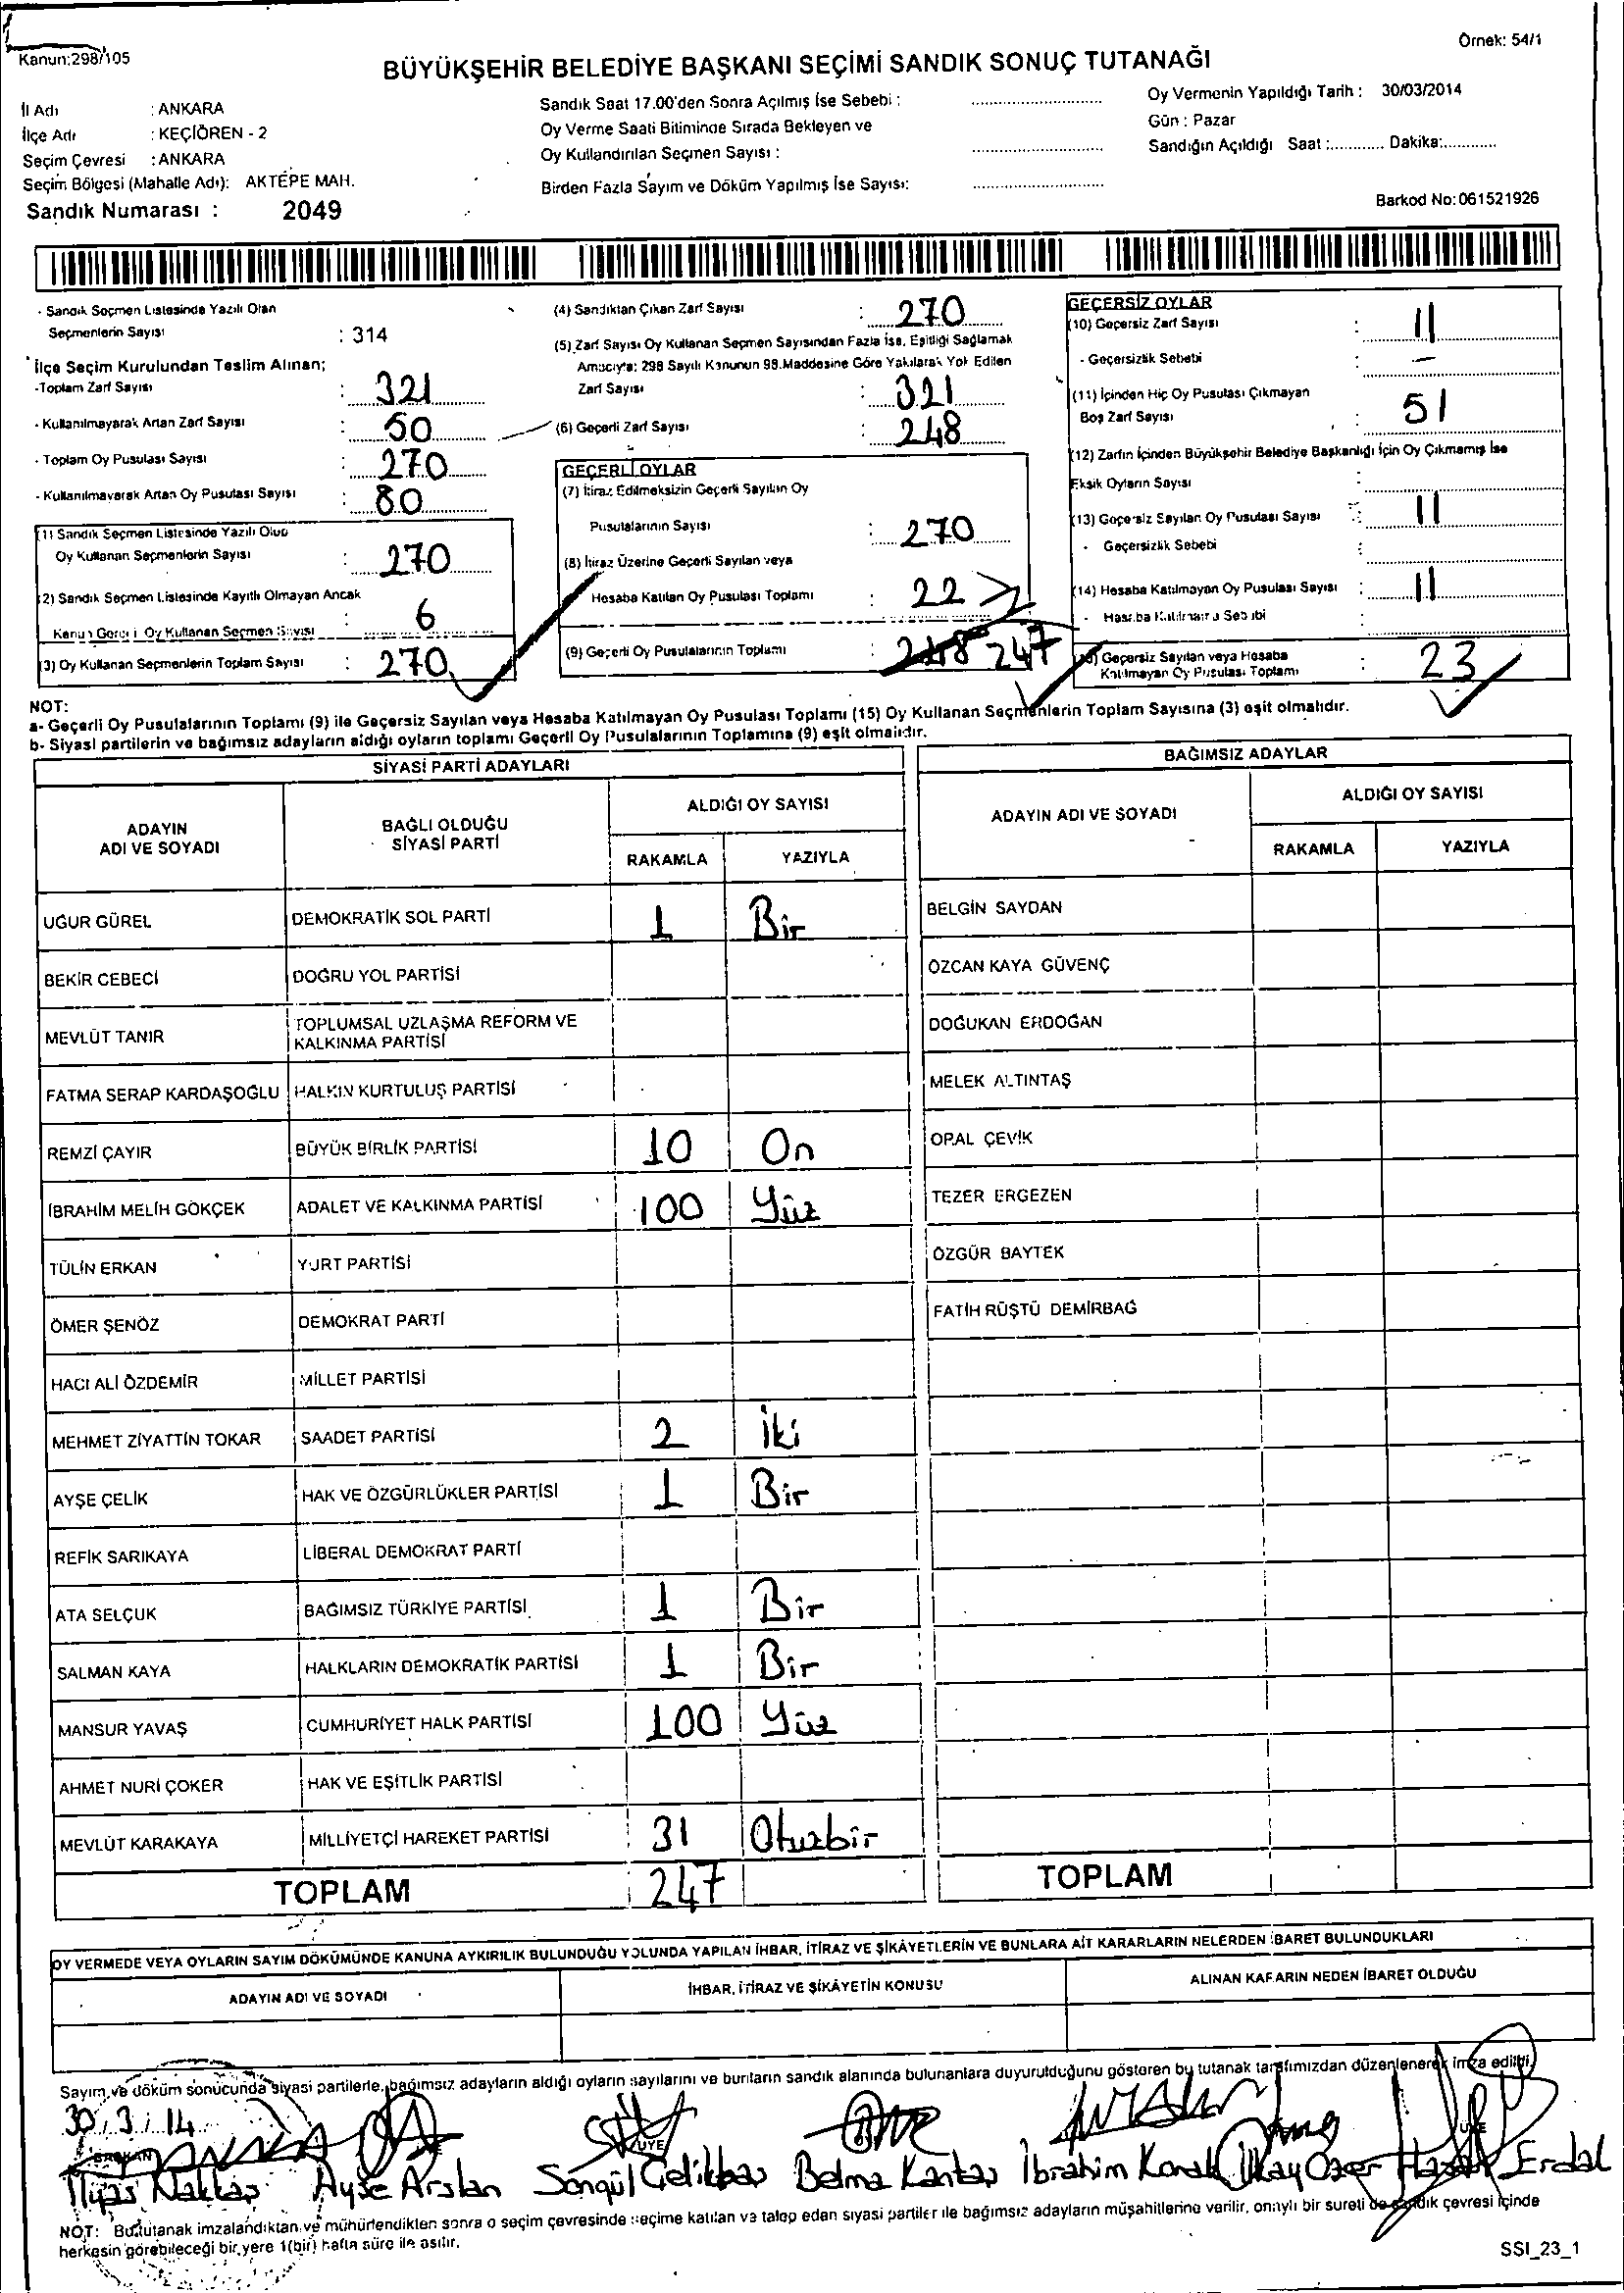 Kanun:298/105
Örnek: 54/1
BÜYÜKŞEHİR BELEDİYE BAŞKANI SEÇİMİ SANDIK SONUÇ TUTANAĞI
İl Adı : ANKARA
İlçe Adı : KEÇİÖREN - 2
Seçim Çevresi : ANKARA
Seçim Bölgesi (Mahalle Adı): AKTEPE MAH.
Sandık Numarası : 2049
Sandık Saat 17.00'den Sonra Açılmış İse Sebebi :
Oy Verme Saati Bitiminde Sırada Bekleyen ve
Oy Kullandırılan Seçmen Sayısı :
Birden Fazla Sayım ve Döküm Yapılmış İse Sayısı:
Oy Vermenin Yapıldığı Tarih : 30/03/2014
Gün : Pazar
Sandığın Açıldığı Saat :............ Dakika:............
Barkod No:061521926
- Sandık Seçmen Listesinde Yazılı Olan
Seçmenlerin Sayısı : 314
İlçe Seçim Kurulundan Teslim Alınan;
-Toplam Zarf Sayısı : 321
- Kullanılmayarak Artan Zarf Sayısı : 50
- Toplam Oy Pusulası Sayısı : 270
- Kullanılmayarak Artan Oy Pusulası Sayısı : 80
(1) Sandık Seçmen Listesinde Yazılı Olup
Oy Kullanan Seçmenlerin Sayısı : 270
(2) Sandık Seçmen Listesinde Kayıtlı Olmayan Ancak
Kanun Gereği Oy Kullanan Seçmen Sayısı : 6
(3) Oy Kullanan Seçmenlerin Toplam Sayısı : 270
(4) Sandıktan Çıkan Zarf Sayısı : 270
(5) Zarf Sayısı Oy Kullanan Seçmen Sayısından Fazla İse, Eşitliği Sağlamak
Amacıyla: 298 Sayılı Kanunun 98.Maddesine Göre Yakılarak Yok Edilen
Zarf Sayısı : 321
(6) Geçerli Zarf Sayısı : 248
GEÇERLİ OYLAR
(7) İtiraz Edilmeksizin Geçerli Sayılan Oy
Pusulalarının Sayısı : 270
(8) İtiraz Üzerine Geçerli Sayılan veya
Hesaba Katılan Oy Pusulası Toplamı : 22
(9) Geçerli Oy Pusulalarının Toplamı : 248 247
GEÇERSİZ OYLAR
(10) Geçersiz Zarf Sayısı : 11
- Geçersizlik Sebebi : -
(11) İçinden Hiç Oy Pusulası Çıkmayan
Boş Zarf Sayısı : 51
(12) Zarfın İçinden Büyükşehir Belediye Başkanlığı İçin Oy Çıkmamış İse
Eksik Oyların Sayısı :
(13) Geçersiz Sayılan Oy Pusulası Sayısı : 11
- Geçersizlik Sebebi :
(14) Hesaba Katılmayan Oy Pusulası Sayısı : 11
- Hesaba Katılmama Sebebi :
(15) Geçersiz Sayılan veya Hesaba
Katılmayan Oy Pusulası Toplamı : 23
NOT:
a- Geçerli Oy Pusulalarının Toplamı (9) ile Geçersiz Sayılan veya Hesaba Katılmayan Oy Pusulası Toplamı (15) Oy Kullanan Seçmenlerin Toplam Sayısına (3) eşit olmalıdır.
b- Siyasi partilerin ve bağımsız adayların aldığı oyların toplamı Geçerli Oy Pusulalarının Toplamına (9) eşit olmalıdır.
SİYASİ PARTİ ADAYLARI
ADAYIN
ADI VE SOYADI
BAĞLI OLDUĞU
SİYASİ PARTİ
ALDIĞI OY SAYISI
RAKAMLA YAZIYLA
UĞUR GÜREL DEMOKRATİK SOL PARTİ 1 Bir
BEKİR CEBECİ DOĞRU YOL PARTİSİ
MEVLÜT TANIR TOPLUMSAL UZLAŞMA REFORM VE
KALKINMA PARTİSİ
FATMA SERAP KARDAŞOĞLU HALKIN KURTULUŞ PARTİSİ
REMZİ ÇAYIR BÜYÜK BİRLİK PARTİSİ 10 On
İBRAHİM MELİH GÖKÇEK ADALET VE KALKINMA PARTİSİ 100 Yüz
TÜLİN ERKAN YURT PARTİSİ
ÖMER ŞENÖZ DEMOKRAT PARTİ
HACI ALİ ÖZDEMİR MİLLET PARTİSİ
MEHMET ZİYATTİN TOKAR SAADET PARTİSİ 2 İki
AYŞE ÇELİK HAK VE ÖZGÜRLÜKLER PARTİSİ 1 Bir
REFİK SARIKAYA LİBERAL DEMOKRAT PARTİ
ATA SELÇUK BAĞIMSIZ TÜRKİYE PARTİSİ 1 Bir
SALMAN KAYA HALKLARIN DEMOKRATİK PARTİSİ 1 Bir
MANSUR YAVAŞ CUMHURİYET HALK PARTİSİ 100 Yüz
AHMET NURİ ÇOKER HAK VE EŞİTLİK PARTİSİ
MEVLÜT KARAKAYA MİLLİYETÇİ HAREKET PARTİSİ 31 Otuzbir
TOPLAM 247
BAĞIMSIZ ADAYLAR
ADAYIN ADI VE SOYADI
ALDIĞI OY SAYISI
RAKAMLA YAZIYLA
BELGİN SAYDAN
ÖZCAN KAYA GÜVENÇ
DOĞUKAN ERDOĞAN
MELEK ALTINTAŞ
OPAL ÇEVİK
TEZER ERGEZEN
ÖZGÜR BAYTEK
FATİH RÜŞTÜ DEMİRBAĞ
TOPLAM
OY VERMEDE VEYA OYLARIN SAYIM DÖKÜMÜNDE KANUNA AYKIRILIK BULUNDUĞU YOLUNDA YAPILAN İHBAR, İTİRAZ VE ŞİKÂYETLERİN VE BUNLARA AİT KARARLARIN NELERDEN İBARET BULUNDUKLARI
ADAYIN ADI VE SOYADI
İHBAR, İTİRAZ VE ŞİKÂYETİN KONUSU
ALINAN KARARIN NEDEN İBARET OLDUĞU
Sayım ve döküm sonucunda siyasi partilerle, bağımsız adayların aldığı oyların sayılarını ve bunların sandık alanında bulunanlara duyurulduğunu gösteren bu tutanak tarafımızdan düzenlenerek imza edildi.
30/3/14
BAŞKAN ÜYE ÜYE
İlyas Nakkaş Ayşe Arslan Songül Çelikbaş Belma Kantaş İbrahim Konak İlkay Özer Hasan Erdal
NOT: Bu tutanak imzalandıktan ve mühürlendikten sonra o seçim çevresinde seçime katılan ve talep edan siyasi partiler ile bağımsız adayların müşahitlerine verilir, onaylı bir sureti de sandık çevresi içinde
herkesin görebileceği bir yere 1(bir) hafta süre ile asılır.
SSI_23_1